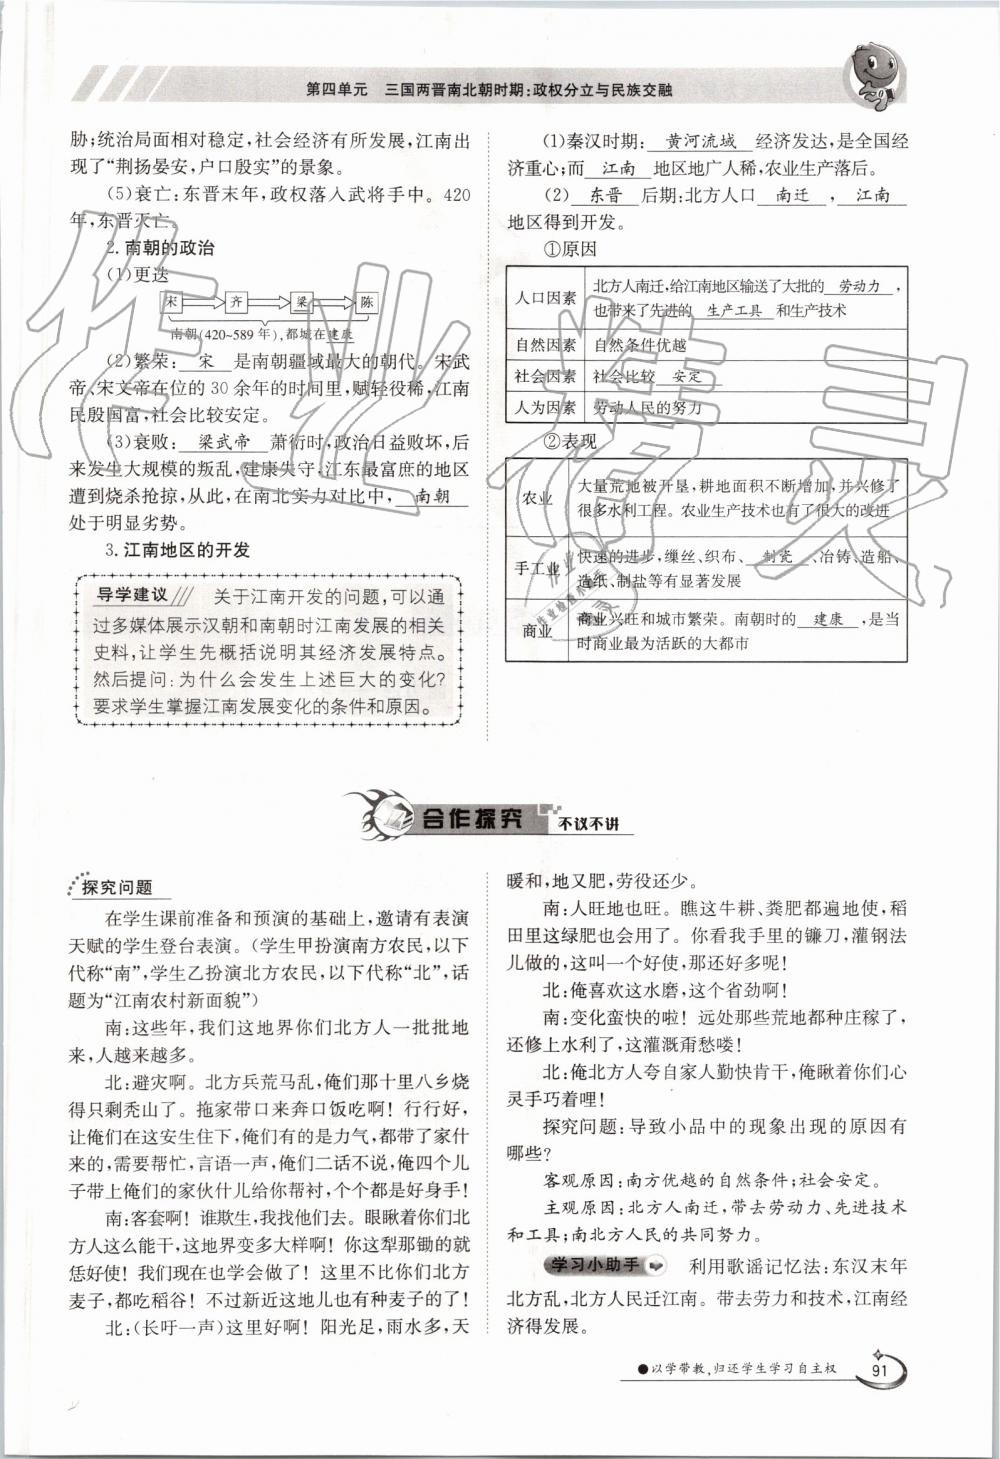 第四单元　三国两晋南北朝时期:政权分立与民族交融
胁;统治局面相对稳定,社会经济有所发展,江南出
现了“荆扬晏安,户口殷实”的景象。
(5)衰亡:东晋末年,政权落入武将手中。420
年,东晋灭亡。
2. 南朝的政治
(1)更迭
宋 齐 梁 陈
南朝(420~589年),都城在建康
(2)繁荣: 宋 是南朝疆域最大的朝代。宋武
帝、宋文帝在位的 30 余年的时间里,赋轻役稀,江南
民殷国富,社会比较安定。
(3)衰败: 梁武帝 萧衍时,政治日益败坏,后
来发生大规模的叛乱,建康失守,江东最富庶的地区
遭到烧杀抢掠,从此,在南北实力对比中, 南朝
处于明显劣势。
3. 江南地区的开发
导学建议 关于江南开发的问题,可以通
过多媒体展示汉朝和南朝时江南发展的相关
史料,让学生先概括说明其经济发展特点。
然后提问:为什么会发生上述巨大的变化?
要求学生掌握江南发展变化的条件和原因。
(1)秦汉时期: 黄河流域 经济发达,是全国经
济重心;而 江南 地区地广人稀,农业生产落后。
(2) 东晋 后期:北方人口 南迁 , 江南
地区得到开发。
①原因
人口因素 北方人南迁,给江南地区输送了大批的 劳动力 ,
也带来了先进的 生产工具 和生产技术
自然因素 自然条件优越
社会因素 社会比较 安定
人为因素 劳动人民的努力
②表现
农业 大量荒地被开垦,耕地面积不断增加,并兴修了
很多水利工程。农业生产技术也有了很大的改进
手工业 快速的进步,缫丝、织布、 制瓷 、冶铸、造船、
造纸、制盐等有显著发展
商业 商业兴旺和城市繁荣。南朝时的 建康 ,是当
时商业最为活跃的大都市
合作探究 不议不讲
探究问题
在学生课前准备和预演的基础上,邀请有表演
天赋的学生登台表演。(学生甲扮演南方农民,以下
代称“南”,学生乙扮演北方农民,以下代称“北”,话
题为“江南农村新面貌”)
南:这些年,我们这地界你们北方人一批批地
来,人越来越多。
北:避灾啊。北方兵荒马乱,俺们那十里八乡烧
得只剩秃山了。拖家带口来奔口饭吃啊! 行行好,
让俺们在这安生住下,俺们有的是力气,都带了家什
来的,需要帮忙,言语一声,俺们二话不说,俺四个儿
子带上俺们的家伙什儿给你帮衬,个个都是好身手!
南:客套啊! 谁欺生,我找他们去。眼瞅着你们北
方人这么能干,这地界变多大样啊! 你这犁那锄的就
恁好使! 我们现在也学会做了! 这里不比你们北方
麦子,都吃稻谷! 不过新近这地儿也有种麦子的了!
北:(长吁一声)这里好啊! 阳光足,雨水多,天
暖和,地又肥,劳役还少。
南:人旺地也旺。瞧这牛耕、粪肥都遍地使,稻
田里这绿肥也会用了。你看我手里的镰刀,灌钢法
儿做的,这叫一个好使,那还好多呢!
北:俺喜欢这水磨,这个省劲啊!
南:变化蛮快的啦! 远处那些荒地都种庄稼了,
还修上水利了,这灌溉甭愁喽!
北:俺北方人夸自家人勤快肯干,俺瞅着你们心
灵手巧着哩!
探究问题:导致小品中的现象出现的原因有
哪些?
客观原因:南方优越的自然条件;社会安定。
主观原因:北方人南迁,带去劳动力、先进技术
和工具;南北方人民的共同努力。
学习小助手 利用歌谣记忆法:东汉末年
北方乱,北方人民迁江南。带去劳力和技术,江南经
济得发展。
●以学带教,归还学生学习自主权 91
作业精灵